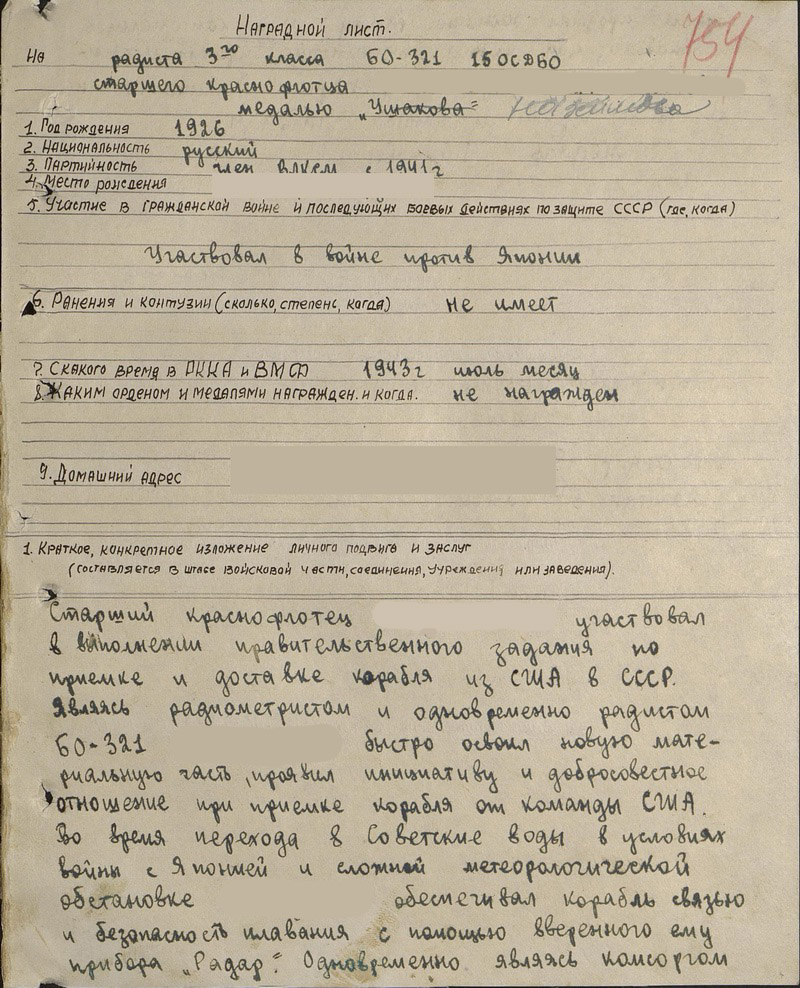 754
Наградной лист.
На радиста 3го класса БО-321 15 ОСДБО
старшего краснофлотца
медалью „Ушакова"
1. Год рождения 1926
2. Национальность русский
3. Партийность член ВЛКСМ с 1941 г
4. Место рождения
5. Участие в гражданской войне и последующих боевых действиях по защите СССР (где, когда)
Участвовал в войне против Японии
6. Ранения и контузии (сколько, степень, когда) не имеет
7. С какого время в РККА и ВМФ 1943 г июль месяц
8. Каким орденом и медалями награжден. и когда. не награжден
9. Домашний адрес
1. Краткое, конкретное изложение личного подвига и заслуг
(составляется в штабе войсковой части, соединения, учреждения или заведения).
Старший краснофлотец участвовал
в выполнении правительственного задания по
приемке и доставке корабля из США в СССР.
Являясь радиометристом и одновременно радистом
БО-321 быстро освоил новую мате-
риальную часть, проявил инициативу и добросовестное
отношение при приемке корабля от команды США.
Во время перехода в Советские воды в условиях
войны с Японией и сложной метеорологической
обстановке обеспечивал корабль связью
и безопасность плавания с помощью вверенного ему
прибора „Радар". Одновременно являясь комсоргом